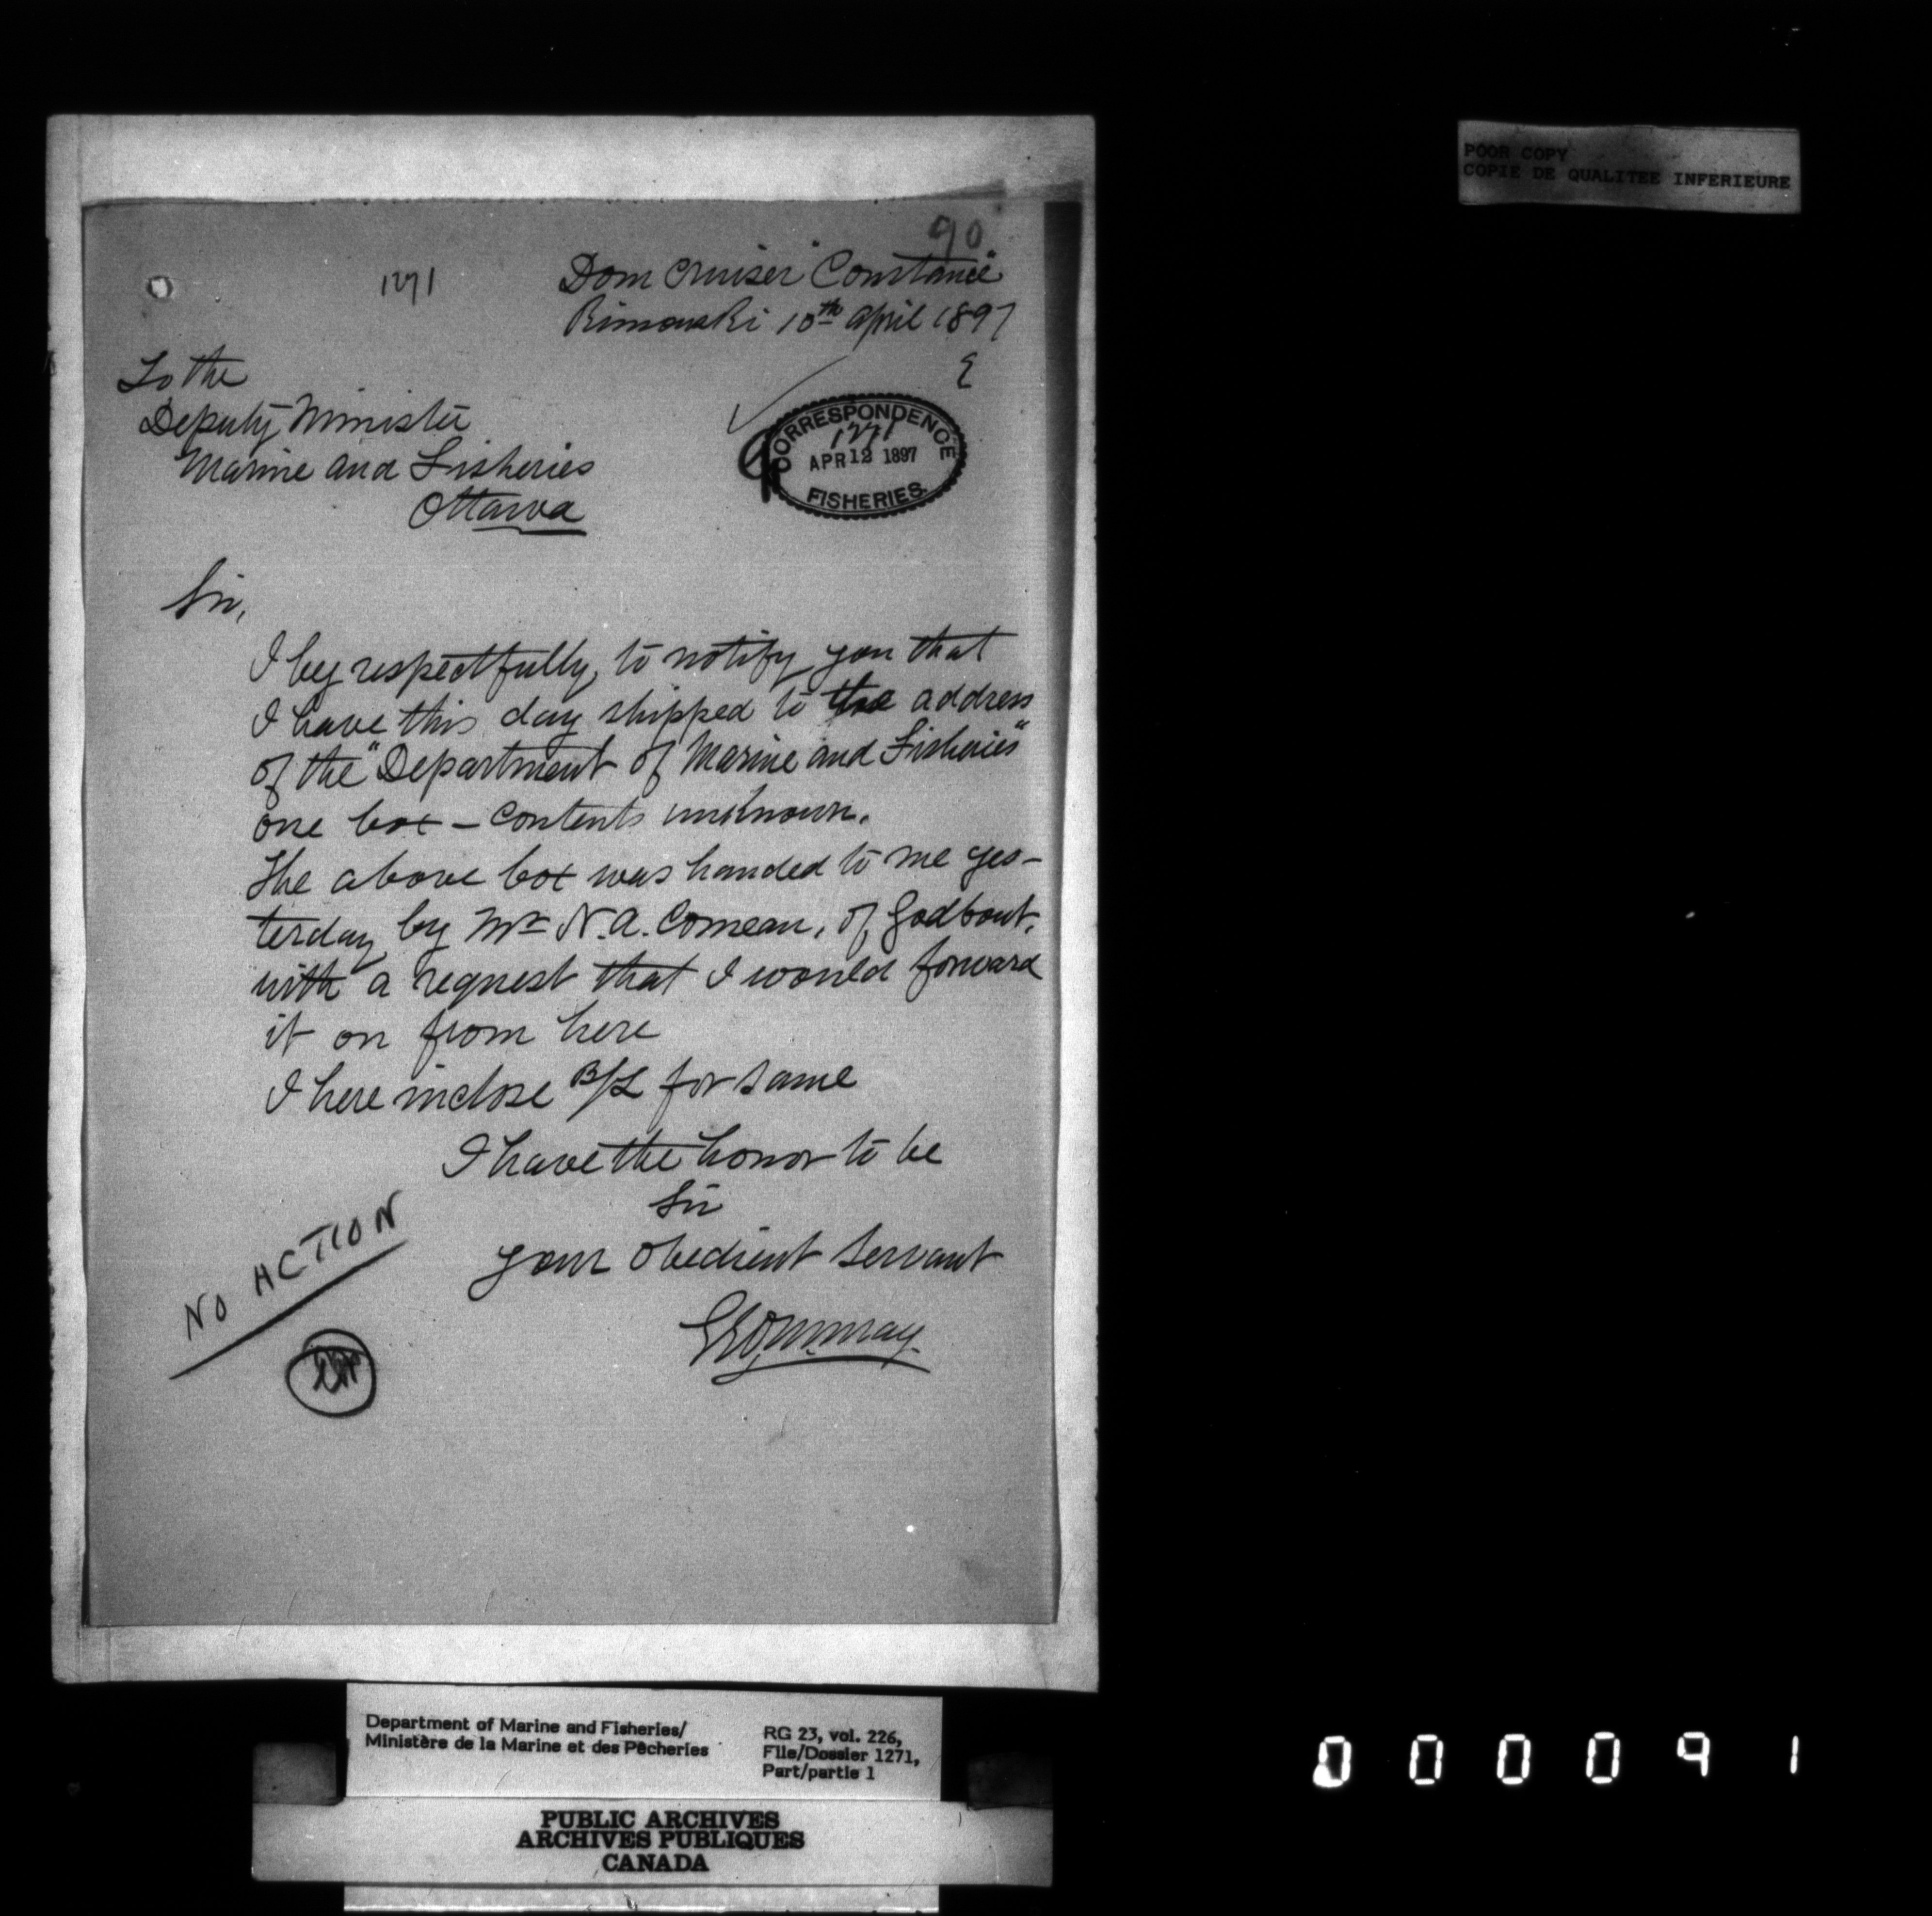 90
1271
Dom Cruiser "Constance"
Rimouski 10th April 1897
To the
Deputy Minister
Marine and Fisheries
Ottawa
CORRESPONDENCE
1271
APR 12 1897
FISHERIES
Sir,
I beg respectfully, to notify you that
I have this day shipped to the address
of the "Department of Marine and Fisheries"
one box – contents unknown.
The above box was handed to me yes-
terday by Mr N. A. Comeau, of Godbout,
with a request that I would forward
it on from here
I here inclose B/L for same
I have the honor to be
Sir
your obedient servant
May.
NO ACTION
POOR COPY
COPIE DE QUALITEE INFERIEURE
Department of Marine and Fisheries/
Ministère de la Marine et des Pêcheries
RG 23, vol. 226,
File/Dossier 1271,
Part/partie 1
PUBLIC ARCHIVES
ARCHIVES PUBLIQUES
CANADA
000091